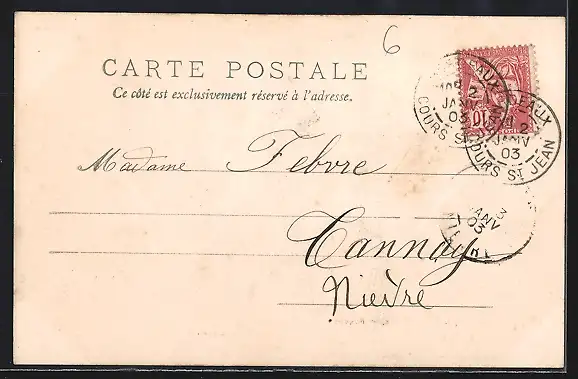 6
CARTE POSTALE
Ce côté est exclusivement réservé à l'adresse.
Madame Febvre
Tannay
Nièvre
EAUX
2
JANV
03
COURS ST
10
EAUX
2
JANV
03
COURS ST JEAN
3
JANV
03